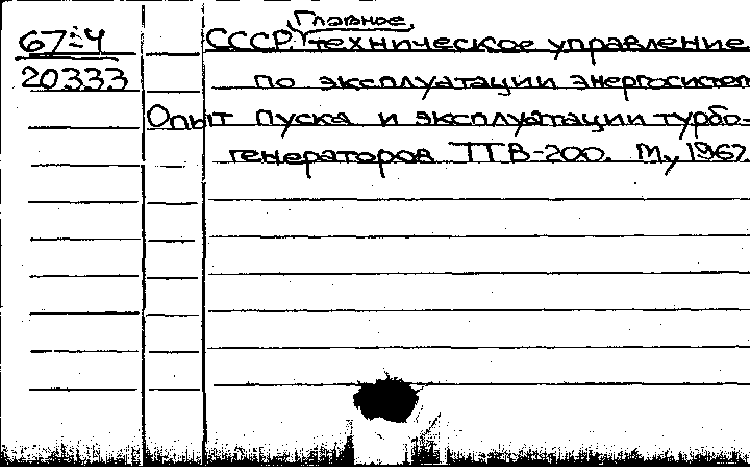 67-4
20333
СССР. Главное техническое управление
по эксплуатации энергосистем
Опыт пуска и эксплуатации турбо-
генераторов ТГВ-200. М., 1967